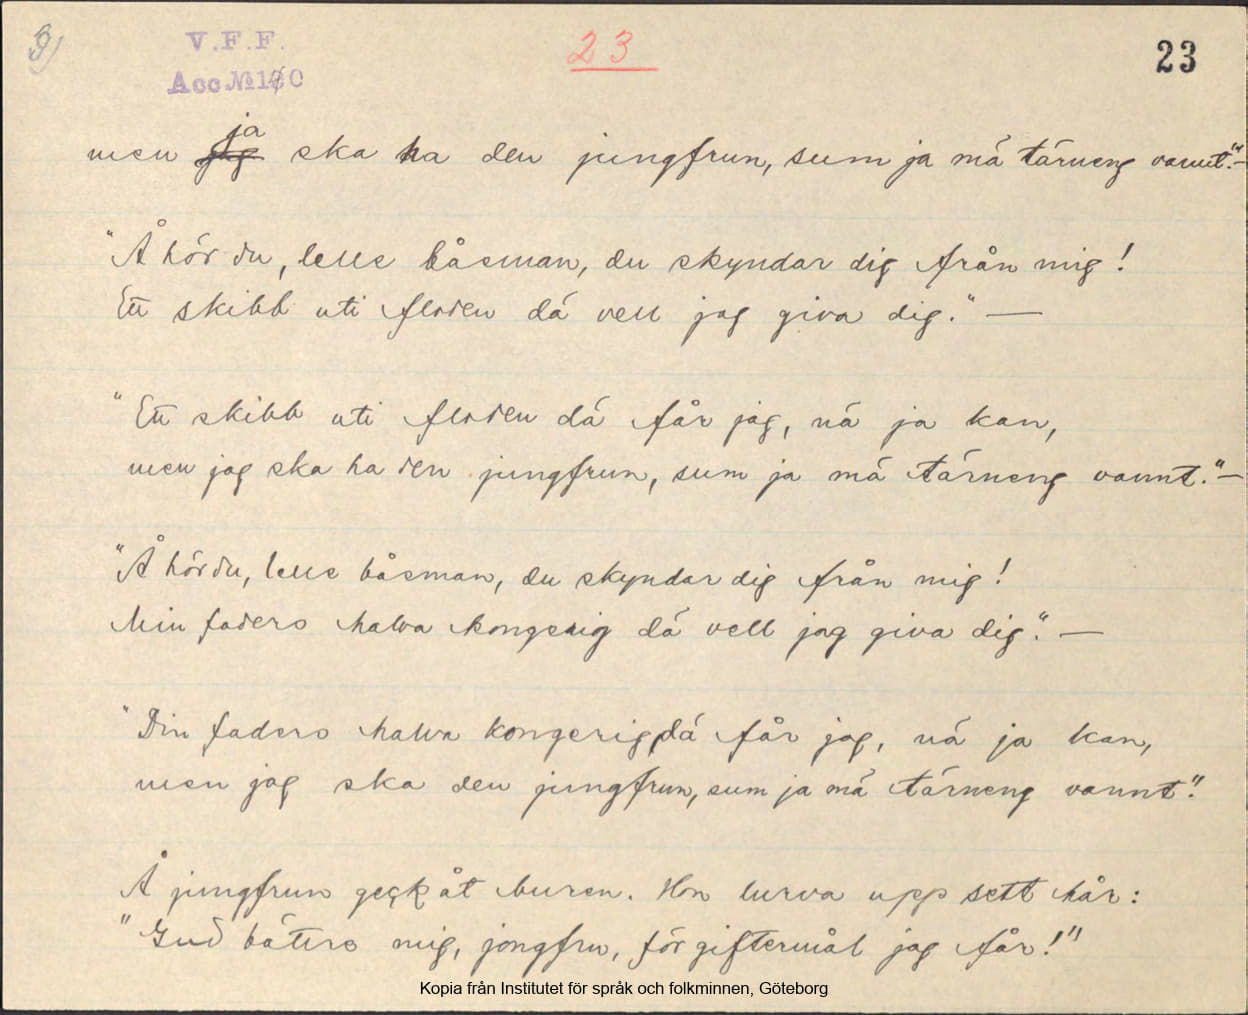 9)
V.F.F.
Acc № 180
23
23
men ja ska ha den jungfrun, sum ja må tärneng vannt."—
"Å hör du, lelle båsman, du skyndar dig från mig!
Ett skibb uti floden dä vell jag giva dig." —
"Ett skibb uti floden dä får jag, nä ja kan,
men jag ska ha den jungfrun, sum ja mä tärneng vannt."—
"Å hör du, lelle båsman, du skyndar dig från mig!
Min faders halva kongerig dä vell jag giva dig." —
"Din faders halva kongerig dä får jag, nä ja kan,
men jag ska den jungfrun, sum ja mä tärneng vannt."
Å jungfrun geck åt buren. Hon lurva upp sett hår:
"Gud bättre mig, jongfru, för giftermål jag får!"
Kopia från Institutet för språk och folkminnen, Göteborg